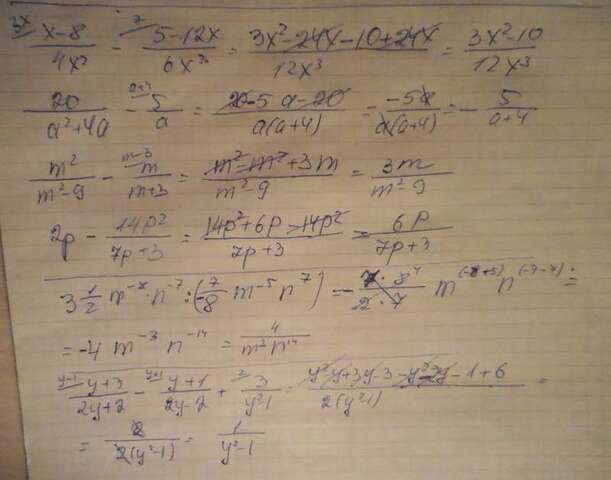 3x/ (x-8)/(4x²) - 2/ (5-12x)/(6x³) = (3x²-24x-10+24x)/(12x³) = (3x²-10)/(12x³)
20/(a²+4a) - a+4/ 5/a = (20-5a-20)/(a(a+4)) = (-5a)/(a(a+4)) = - 5/(a+4)
m²/(m²-9) - m-3/ m/(m+3) = (m²-m²+3m)/(m²-9) = 3m/(m²-9)
2p - 14p²/(7p+3) = (14p²+6p-14p²)/(7p+3) = 6p/(7p+3)
3 1/2 m⁻⁸·n⁻⁷ : (-7/8 m⁻⁵ n⁷) = - (7·8⁴)/(2·7) m^(-8+5) n^(-7-7) =
= -4 m⁻³ n⁻¹⁴ = 4/(m³n¹⁴)
y-1/ (y+3)/(2y+2) - y+1/ (y+1)/(2y-2) + 2/ 3/(y²-1) = (y²-y+3y-3-y²-2y-1+6)/(2(y²-1)) =
= 2/(2(y²-1)) = 1/(y²-1)